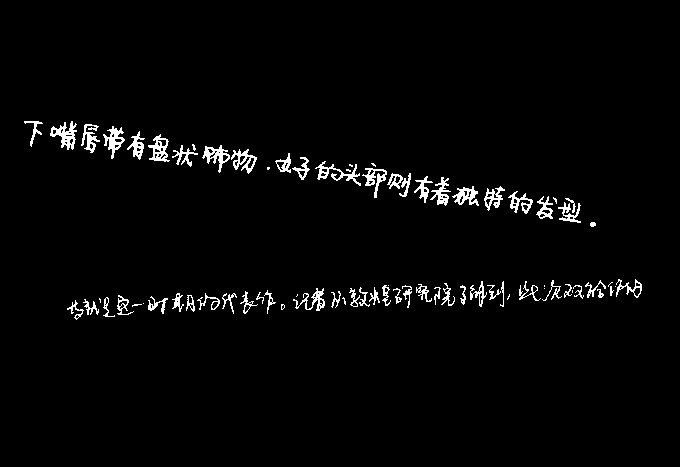 下嘴唇带有盘状饰物.女子的头部则有着独特的发型.
就是这一时期的代表作。记者从敦煌研究院了解到,此次双方合作的